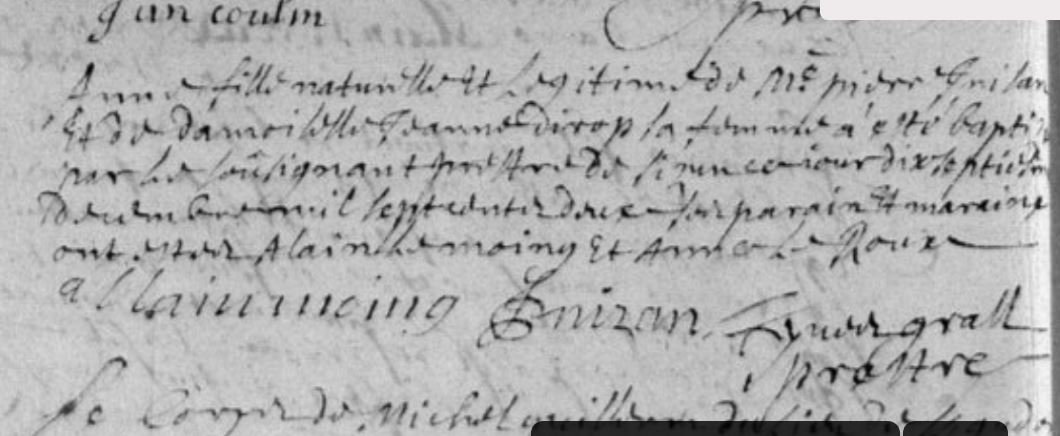 g an coulm
Anne fille naturelle et Legitime de Mre pierre Guisan
Et de damoiselle Jeanne dirop sa femme a esté bapti
par Le soûsignant prestre de ce jour dixseptiesm
decembre mil sept cents deux Ses parain Et maraine
ont estez Alain Le moing Et Anne Le Roux
allain moing Guizan grall
prestre
Le Corps de Michel du